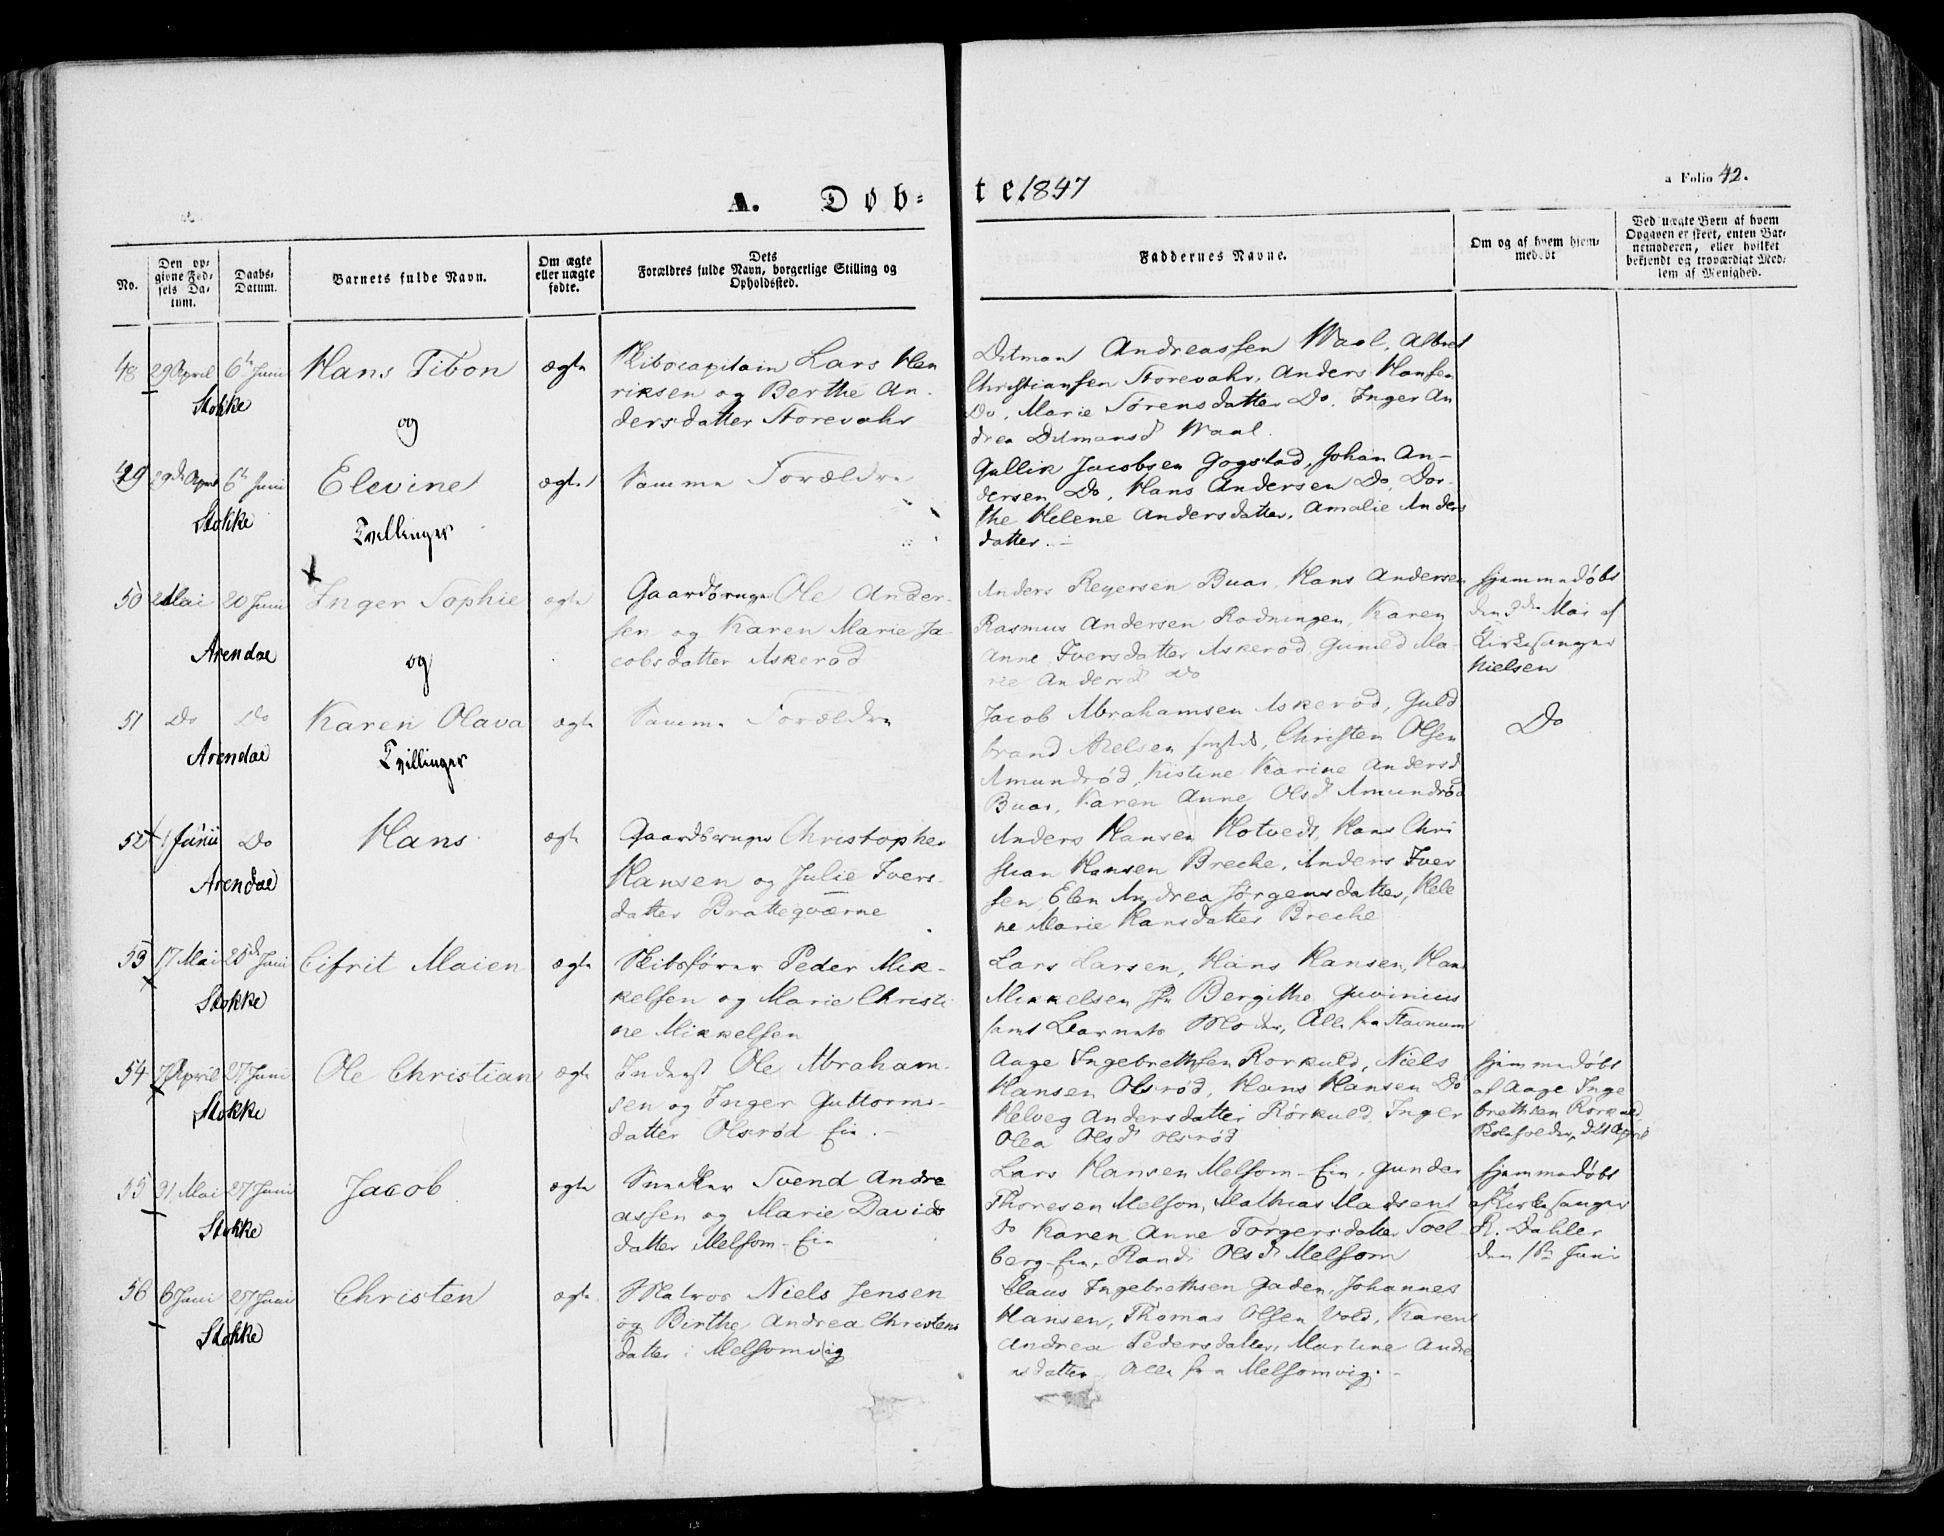 A. Døb-te 1847
a Folio 42.
No.
Den opgivne Fødsels Datum.
Daabs-Datum.
Barnets fulde Navn.
Om ægte eller uægte fødte.
Dets Forældres fulde Navn, borgerlige Stilling og Opholdssted.
Faddernes Navne.
Om og af hvem hjemmedøbt
Ved uægte Børn af hvem Opgaven er skeet, enten Barnemoderen, eller hvilket bekjendt og troværdigt Medlem af Menighed.
48 29 April 6te Juni Hans Tibon ægte Skibscapitain Lars Hen
Stokke
riksen og Berthe An-
og
dersdatter Storevahr
Ditman Andreassen Waal, Albret
Christiansen Storevahr, Anders Hansen
Do, Marie Sørensdatter Do, Inger An
drea Ditmansd Waal.
49 29de April 6te Juni Elevine ægte Samme Forældre
Stokke
Tvillinger
Gullik Jacobsen Gogstad, Johan An-
dersen Do, Hans Andersen Do, Dor-
the Helene Andersdatter, Amalie Anders
datter.
50 2 Mai 20 Juni Inger Sophie ægte Gaardbruger Ole Ander-
sen og Karen Marie Ja-
Arendae
og
cobsdatter Askerød
Anders Reyersen Buar, Hans Andersen
Rasmus Andersen Rodningen, Karen
Anne Iversdatter Askerød, Guneld Ma-
rie Andersd Do
hjemmedøbt
den 3die Mai af
Kirkesanger
Nielsen
51 Do Do Karen Olava ægte Samme Forældre
Arendae
Tvillinger
Jacob Abrahamsen Askerød, Guld
brand Axelsen, Christen Olsen
Amundrød, Kistine Karine Andersd
Buar, Karen Anne Olsd Amundrød
Do
52 1 Junii Do Hans ægte Gaardbruger Christopher
Arendae
Hansen og Julie Ivers-
datter Bratteqværne
Anders Hansen Hotvedt, Hans Chri
stian Hansen Breche, Anders Iver
sen, Elen Andrea Jørgensdatter, Hele
ne Marie Hansdatter Breche
53 17 Mai Juni Maien ægte Skibsfører Peder Mik-
Stokke
kelsen og Marie Christi
ne Mikkelsen
Lars Larsen, Hans Hansen, Hans
Mikkelsen Bergithe
samt Barnets Moder, Alle fra
54 April 27 Juni Ole Christian ægte Inderst Ole Abraham-
Stokke
sen og Inger Guttorms-
datter Olsrød Eie.
Aage Ingebrethsen Rorkuld, Niels
Hansen Olsrød, Hans Hansen Do
Helveg Andersdatter Rørkuld, Inger
Olea Olsd Olsrød
hjemmedøbt
af Aage Inge
brethsen Rorkuld
April
55 31 Mai 27 Juni Jacob ægte Snedker Svend Andre
Stokke
assen og Marie Davids
datter Melsom-Eie
Lars Hansen Melsom-Eie, Gunder
Thoresen Melsom, Mathias Madsen
Do Karen Anne Torgersdatter Soel
berg-Eie, Randi Olsd Melsom
hjemmedøbt
af Kirkesanger
R. Dahler
den 1te Juni
56 6 Juni 27 Juni Christen ægte Matros Niels Jensen
Stokke
og Birthe Andrea Christens
datter i Melsomvig
Claus Ingebrethsen Gaden, Johannes
Hansen, Thomas Olsen Vold, Karen
Andrea Pedersdatter, Martine Andre
asdatter, Alle fra Melsomvig.